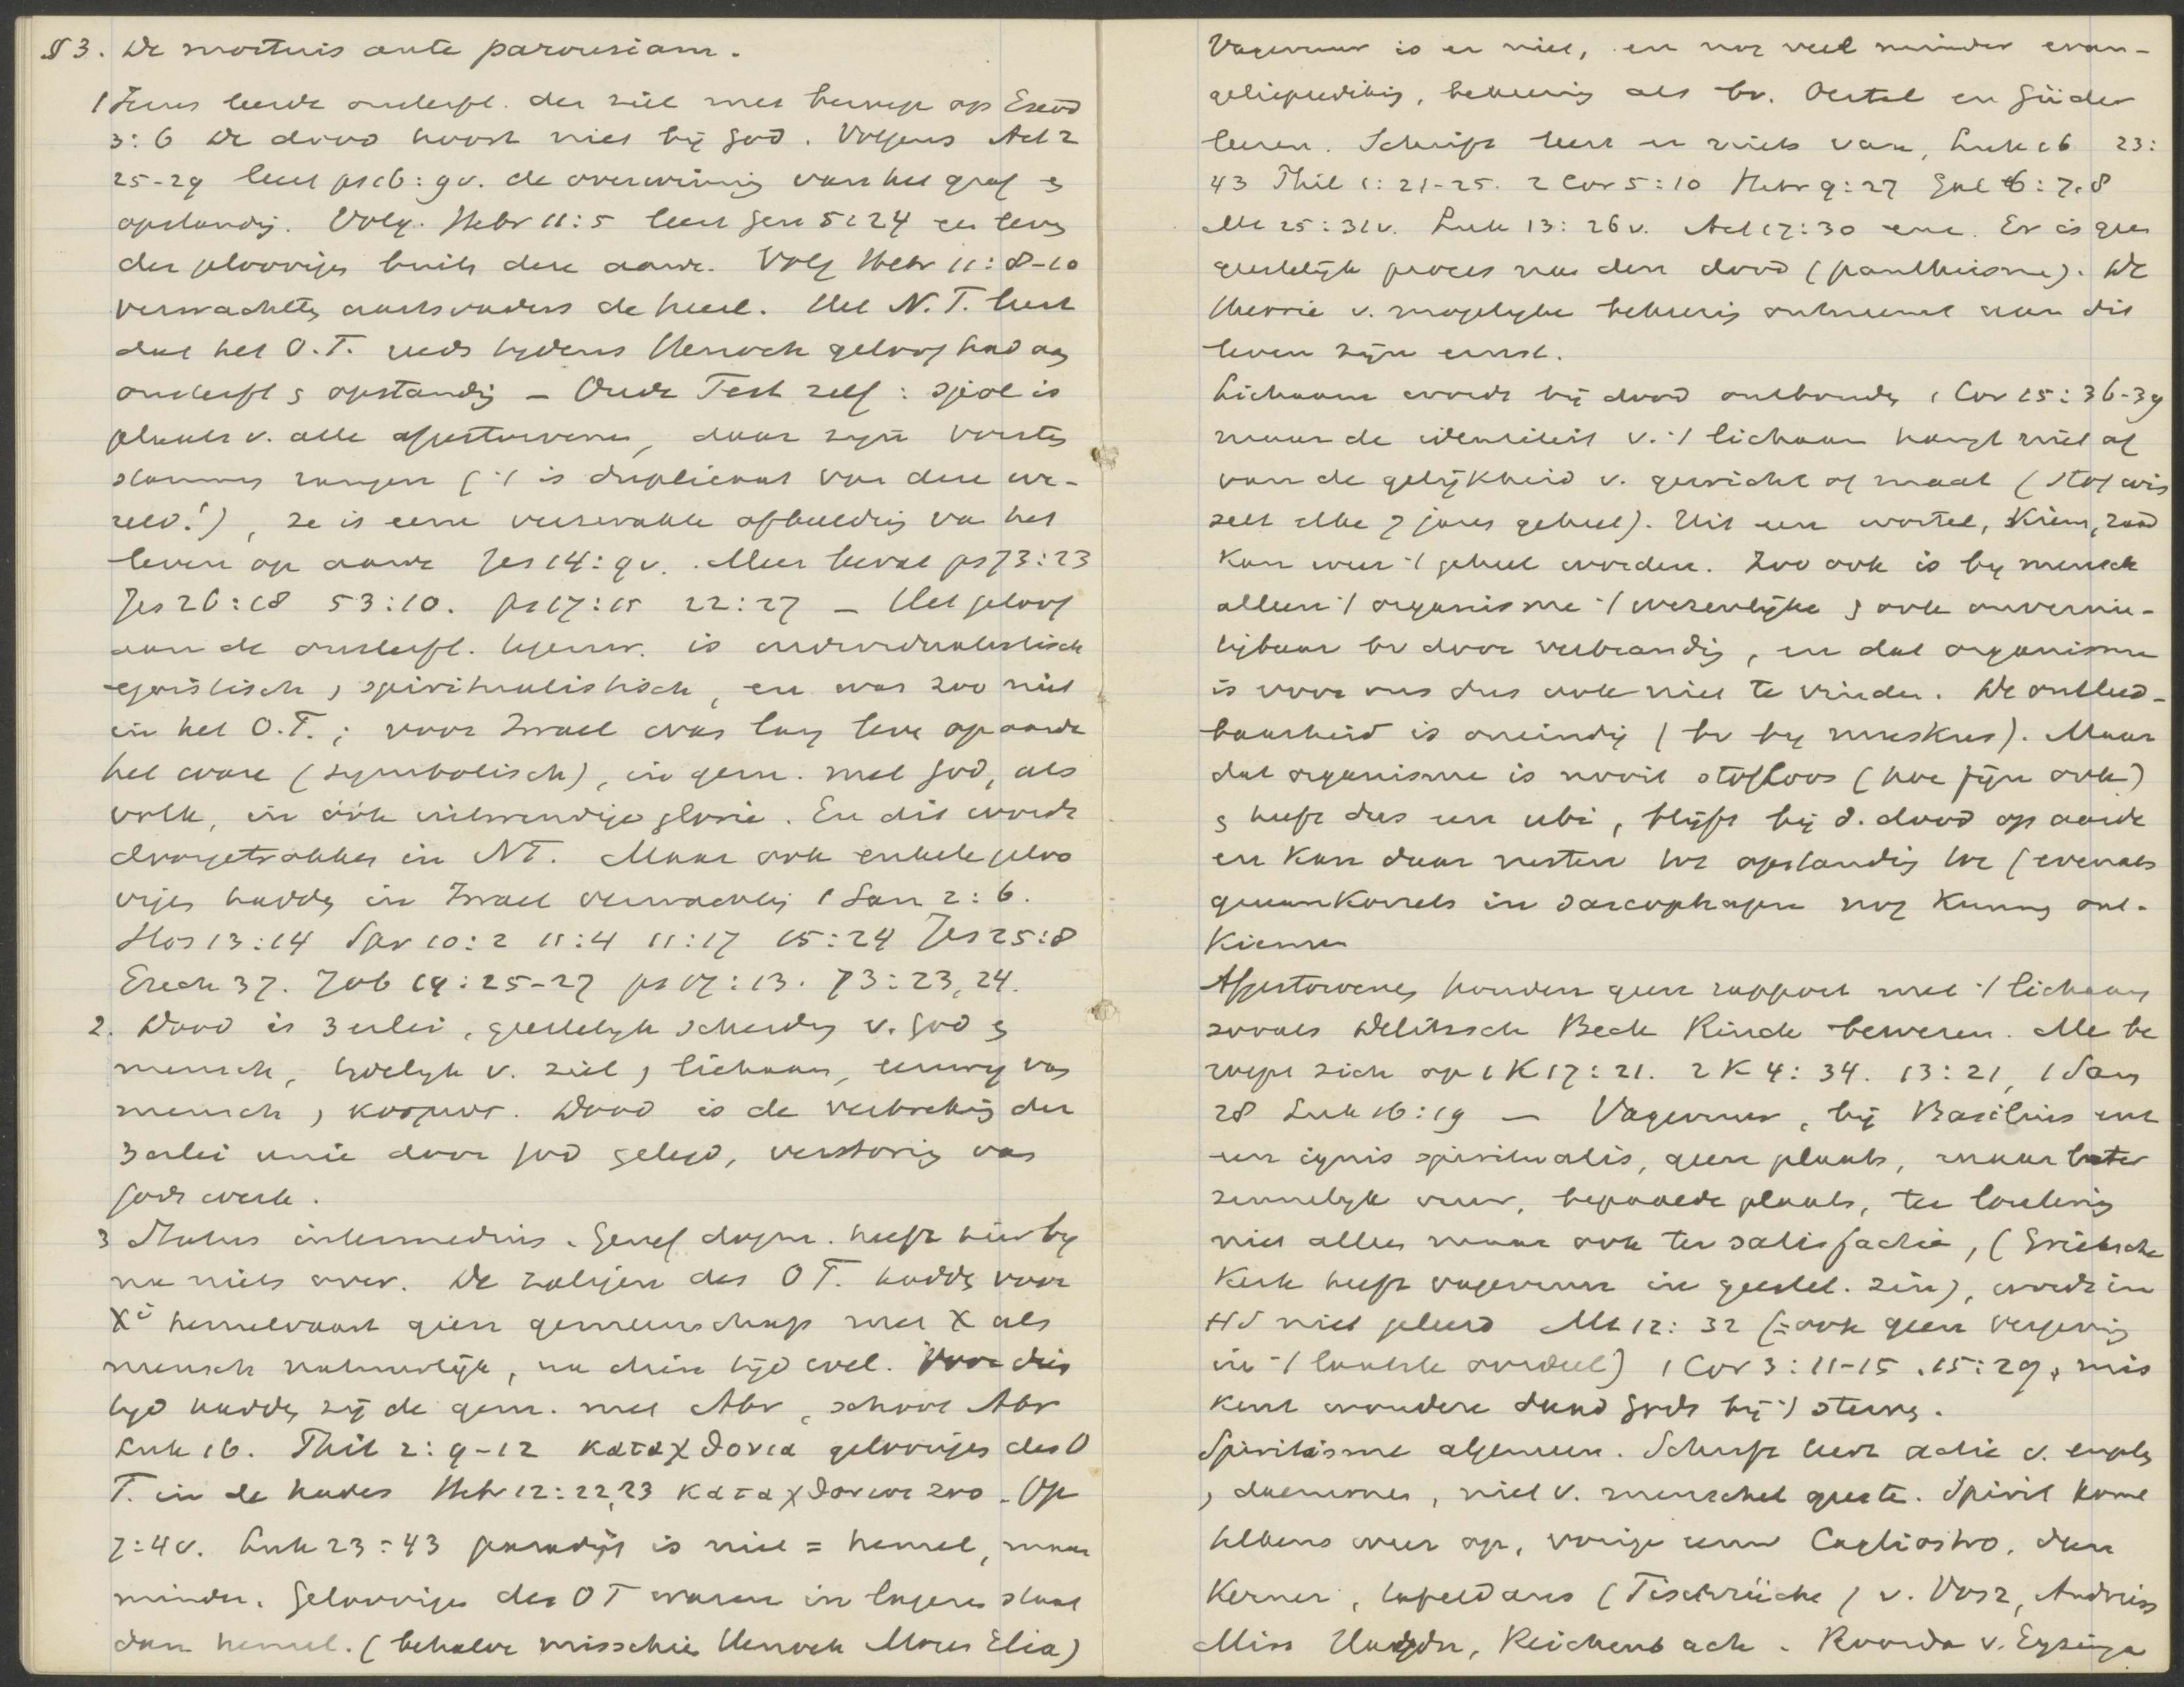 § 3. De mortuis ante parousiam.
1 Jezus leerde onsterfl. der ziel met beroep op Exod
3:6 De dood hoort niet bij God. Volgens Act 2
25-29 leert ps 16:9v. de overwinning van het graf en
opstanding. Volg. Hebr 11:5 leert Gen 5:24 een leven
der geloovigen buiten deze aarde. Volg Hebr 11:8-10
verwachtten aartsvaders de heml. Het N.T. leert
dat het O.T. reeds tijdens Henoch geloof had aan
onsterfl en opstanding – Oude Test zelf: sjeol is
plaats v. alle afgestorvenen, daar zijn vorsten
stammen rangen ('t is duplicaat van deze we-
reld!), ze is eene verzwakte afbeelding van het
leven op aarde Jes 14:9v. Meer bevat ps 73:23
Jes 26:18 53:10. ps 17:15 22:27 – Het geloof
aan de onsterfl. tegenw. is individualistisch
egoistisch, spiritualistisch, en was zoo niet
in het O.T.; voor Israel was lang leven op aarde
het ware (symbolisch), in gem. met God, als
volk, in óók uitwendige glorie. En dit wordt
doorgetrokken in NT. Maar ook enkele geloo
vigen hadden in Israel verwachting 1 Sam 2:6.
Hos 13:14 Spr 10:2 11:4 11:17 15:24 Jes 25:8
Ezech 37. Job 19:25-27 ps 17:13. 73:23,24.
2. Dood is 3 erlei, geestelijk scheiding v. God en
mensch, tijdelijk v. ziel en lichaam, eeuwig van
mensch en kosmos. Dood is de verbreking der
3erlei unie door God gelegd, verstoring van
Gods werk.
3 Status intermedius. Geref dogm. heeft hierbij
na niets over. De zaligen des O T. hadden voor
Xi hemelvaart geen gemeenschap met X als
mensch natuurlijk, na dien tijd wel. Voor dien
tijd hadden zij de gem. met Abr, schoot Abr
Luk 16. Phil 2:9-12 καταχθονια geloovigen des O
T. in de hades Hebr 12:22,23 καταχθονιοι zoo. Op
7:4v. Luk 23:43 paradijs is niet = hemel, maar
minder. Geloovigen des OT waren in lageren staat
dan hemel. (behalve misschien Henoch Mozes Elia)
Vagevuur is er niet, en nog veel minder evan-
geliepredikin, bekeering als bv. Oertel en Güder
leeren. Schrift leert er niets van, Luk 16 23:
43 Phil 1:21-25. 2 Cor 5:10 Hebr 9:27 Gal 6:7.8
Mt 25:31v. Luk 13:26v. Act 17:30 enz. Er is geen
geestelijk proces na den dood (pantheisme). De
theorie v. mogelijke bekeering ontneemt aan dit
leven zijn ernst.
Lichaam wordt bij dood ontbonden 1 Cor 15:36-39
maar de identiteit v. 't lichaam hangt niet af
van de gelijkheid v. gewicht of maat (stof wis
selt elke 7 jaren geheel). Uit een wortel, kiem, zaad
kan weer 't geheel worden. Zoo ook is bij mensch
alleen 't organisme 't wezenlijke en ook onvernie-
tigbaar bv door verbranding, en dat organisme
is voor ons dus ook niet te vinden. De ontleed-
baarheid is oneindig (bv bij muskus). Maar
dat organisme is nooit stofloos (hoe fijn ook)
en heeft dus een ubi, blijft bij d. dood op aarde
en kan daar rusten tot opstanding toe (evenals
graankorrels in sarcophagen nog kunnen ont-
kiemen
Afgestorvenen houden geen rapport met 't lichaam
zooals Delitzsch Beck Rinck beweren. Me be
roept zich op 1 K 17:21. 2 K 4:34. 13:21, 1 Sam
28 Luk 16:19 – Vagevuur, bij Basilius enz
een ignis spiritualis, geen plaats, maar later
zinnelijk vuur, bepaalde plaats, ter loutering
niet alleen maar ook ter satisfactie, (Grieksche
Kerk heeft vagevuur in geestel. zin), wordt in
HS niet geleerd Mt 12:32 (= ook geen vergeving
in 't laatste oordeel) 1 Cor 3:11-15. 15:29, mis
kent wondere daad Gods bij 't sterven.
Spiritisme algemeen. Schrift leert actie v. engelen
, daemonen, niet v. menschel geesten. Spirit komt
telkens weer op, vorige eeuw Cagliostro, dan
Kerner, tafeldans (Tischrücken) v. Vosz, Andries
Miss Hayden, Reichenbach. Roorda v. Eysinga